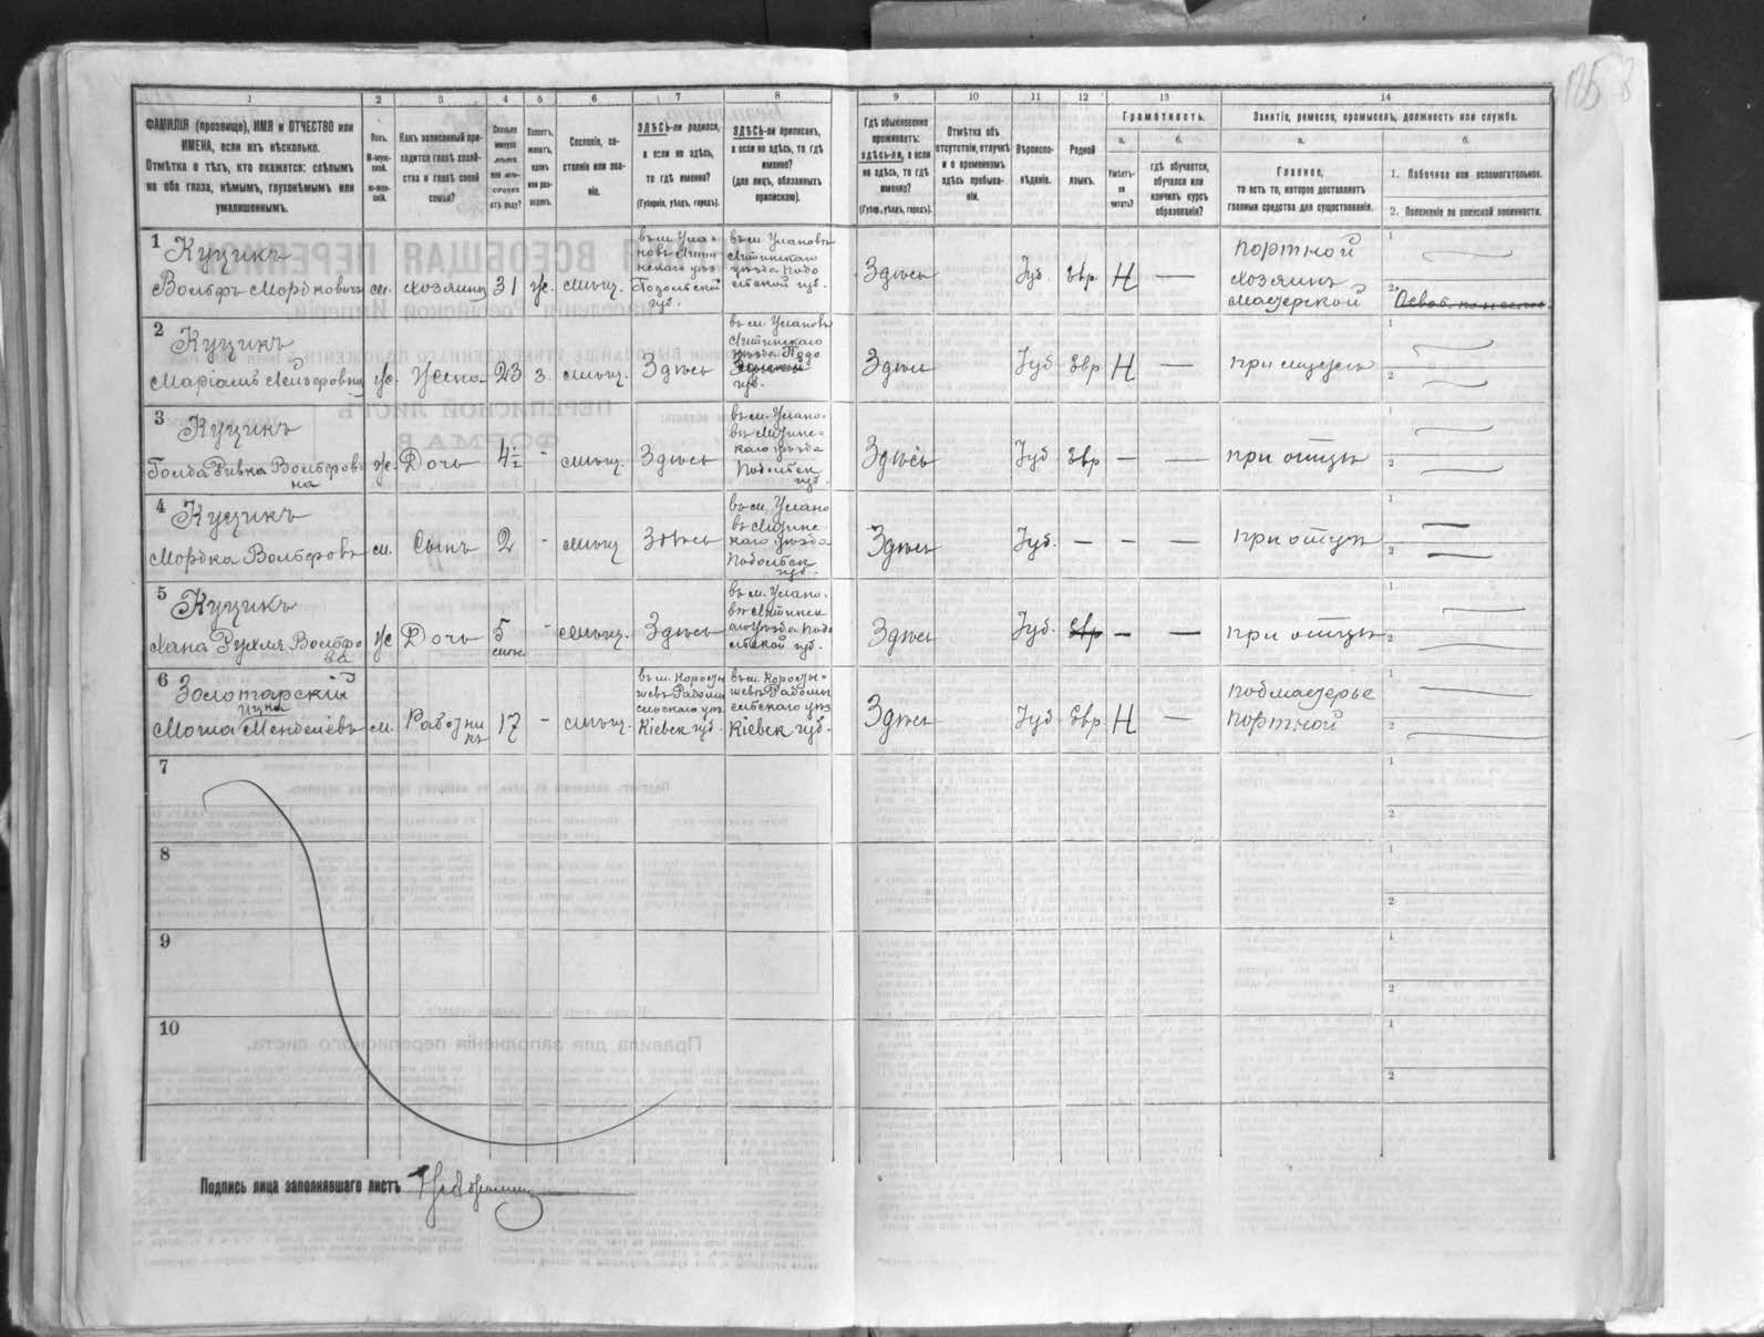 1 2 3 4 5 6 7 8 9 10 11 12 13 14
ФАМИЛІЯ (прозвище), ИМЯ и ОТЧЕСТВО или
ИМЕНА, если ихъ нѣсколько.
Отмѣтка о тѣхъ, кто окажется: слѣпымъ
на оба глаза, нѣмымъ, глухонѣмымъ или
умалишеннымъ.
Полъ.
М-муж-
ской.
Ж-жен-
скій.
Какъ записанный при-
ходится главѣ хозяй-
ства и главѣ своей
семьи?
Сколько
минуло
лѣтъ
или мѣ-
сяцевъ
отъ роду?
Холостъ,
женатъ,
вдовъ
или раз-
веденъ.
Сословіе, со-
стояніе или зва-
ніе.
ЗДѢСЬ-ли родился,
а если не здѣсь,
то гдѣ именно?
(Губернія, уѣздъ, городъ).
ЗДѢСЬ-ли приписанъ,
а если не здѣсь, то гдѣ
именно?
(для лицъ, обязанныхъ
припискою).
Гдѣ обыкновенно
проживаетъ:
здѣсь-ли, а если
не здѣсь, то гдѣ
именно?
(Губер., уѣздъ, городъ).
Отмѣтка объ
отсутствіи, отлучкѣ
и о временномъ
здѣсь пребыва-
ніи.
Вѣроиспо-
вѣданіе.
Родной
языкъ.
Грамотность.
а.
Умѣетъ-
ли
читать?
б.
гдѣ обучается,
обучался или
кончилъ курсъ
образованія?
Занятіе, ремесло, промыселъ, должность или служба.
а.
Главное,
то есть то, которое доставляетъ
главныя средства для существованія.
б.
1. Побочное или вспомогательное.
2. Положеніе по воинской повинности.
1 Куцикъ
Вольфъ Мордковичъ м. хозяинъ 31 ж. мѣщ.
въ м. Ула-
новѣ Литин
скаго уѣз.
Подольской
губ.
въ м. Улановѣ
Литинскаго
уѣзда Подо
льской губ.
Здѣсь Іуд. Евр. Н —
портной
хозяинъ
мастерской
2 Куцикъ
Маріамъ Лейзеровна ж. Жена 23 з. мѣщ. Здѣсь
въ м. Улановѣ
Литинскаго
уѣзда Подо
губ.
Здѣсь Іуд Евр Н — при мужѣ
3 Куцикъ
Голда Ривка Вольфов
на ж. Дочь 4½ - мѣщ. Здѣсь
въ м. Улано-
вѣ Литинс-
каго уѣзда
Подольск
губ.
Здѣсь Іуд Евр — — при отцѣ
4 Куцикъ
Мордка Вольфовъ м. Сынъ 2 - мѣщ Здѣсь
въ м. Улано
вѣ Литинс
каго уѣзда
Подольск
губ.
Здѣсь Іуд. — — — при отцѣ
5 Куцикъ
Хана Рухля Вольфо
ва ж Дочь 5
мѣс. - мѣщ. Здѣсь
въ м. Улано-
вѣ Литинск
аго уѣзда Подо
льской губ.
Здѣсь Іуд. Евр — — при отцѣ
6 Золотарскій
Ицка
Мошка Менделевъ м. Работни
къ 17 - мѣщ.
въ м. Коросты
шевѣ Радомы
сльскаго уѣз
Кіевск губ.
въ м. Коросты-
шевѣ Радомы
сльскаго уѣз
Кіевск губ.
Здѣсь Іуд Евр. Н —
подмастерье
портной
7
8
9
10
Подпись лица заполнявшаго листъ